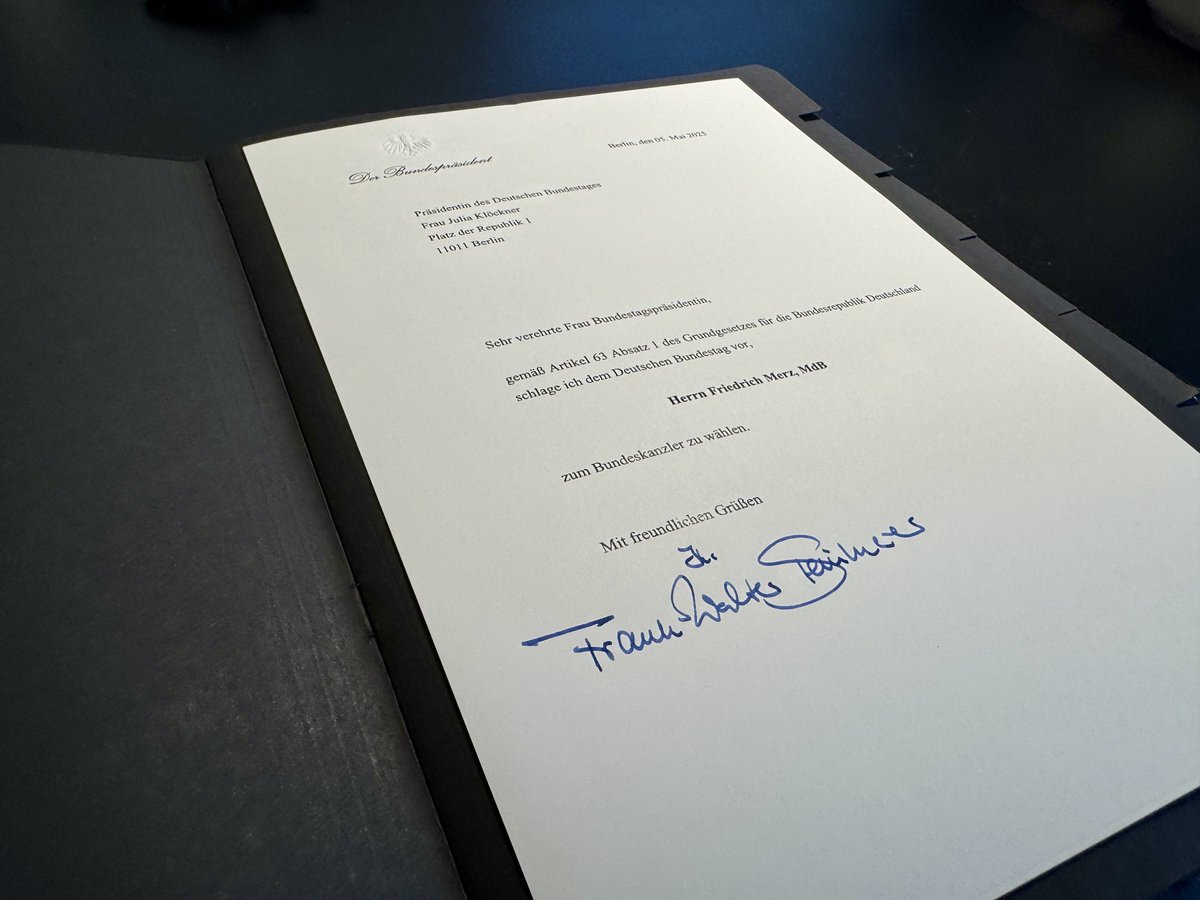 Der Bundespräsident
Berlin, den 05. Mai 2025
Präsidentin des Deutschen Bundestages
Frau Julia Klöckner
Platz der Republik 1
11011 Berlin
Sehr verehrte Frau Bundestagspräsidentin,
gemäß Artikel 63 Absatz 1 des Grundgesetzes für die Bundesrepublik Deutschland
schlage ich dem Deutschen Bundestag vor,
Herrn Friedrich Merz, MdB
zum Bundeskanzler zu wählen.
Mit freundlichen Grüßen
Ihr
Frank-Walter Steinmeier